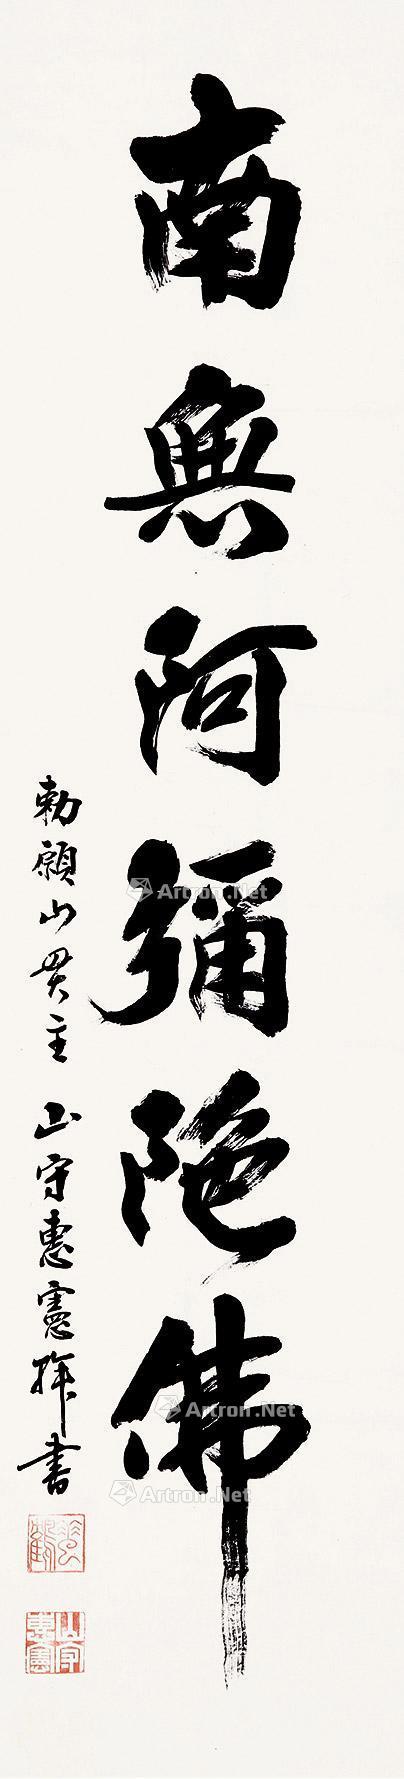 南無阿彌陀佛
勅願山貫主 山守惠憲拝書
山守惠憲
Artron.Net
Artron.Net
Artron.Net